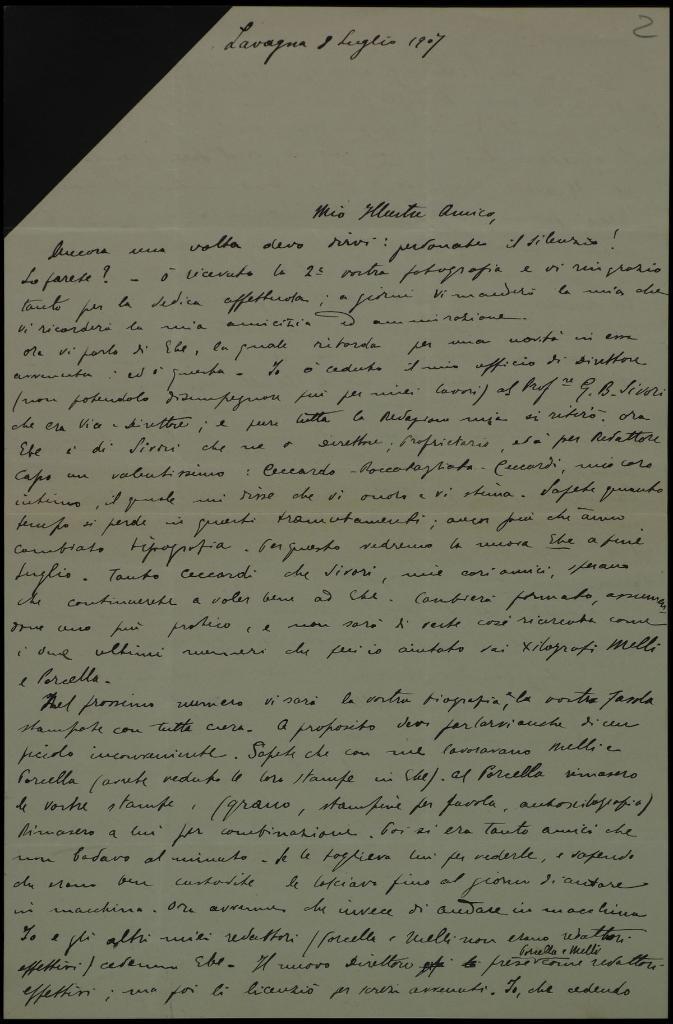 2
Lavagna 8 Luglio 1907
Mio Illustre Amico,
Ancora una volta devo dirvi: perdonate il silenzio!
Lo farete? - ò ricevuta la 2ª vostra fotografia e vi ringrazio
tanto per la dedica affettuosa; a giorni vi manderò la mia che
vi ricorderà la mia amicizia ed ammirazione.
Ora vi parlo di Ebe, la quale ritarda per una novità in essa
avvenuta: ed è questa - Io ò ceduto il mio ufficio di Direttore
(non potendolo disimpegnare più per miei lavori) al Prof.re G. B. Sivori
che era Vice-Direttore; e pure tutta la Redazione mia si ritirò. Ora
Ebe è di Sivori che ne è Direttore, Proprietario, ed à per Redattore
Capo un valentissimo: Ceccardo-Roccatagliata-Ceccardi, mio caro
intimo, il quale mi disse che vi onora e vi stima. Sapete quanto
tempo si perde in questi tramutamenti; ancor più che ànno
cambiato tipografia. Per questo vedremo la nuova Ebe a fine
Luglio. Tanto Ceccardi che Sivori, miei cari amici, sperano
che continuerete a voler bene ad Ebe. Cambierà formato, assumen-
done uno più pratico, e non sarà di veste così ricercata come
i due ultimi numeri che feci io aiutato dai xilografi Melli
e Porcella.
Nel prossimo numero vi sarà la vostra biografia, la vostra Tavola
stampate con tutta cura. A proposito devo parlarvi anche di un
piccolo inconveniente. Sapete che con me lavoravano Melli e
Porcella (avete veduto le loro stampe in Ebe). Al Porcella rimasero
le vostre stampe, (grano, stampine per favola, autoxilografia)
Rimasero a lui per combinazione. Poi si era tanto amici che
non badavo al minuto. Se le toglieva lui per vederle, e sapendo
che erano ben custodite le lasciavo fino al giorno di andare
in macchina. Ora avvenne che invece di andare in macchina
Io e gli altri miei redattori (Porcella e Melli non erano redattori
effettivi) cedemmo Ebe. Il nuovo Direttore prese Porcella e Melli come redattori
effettivi; ma poi li licenziò per screzi avvenuti. Io, che cedendo